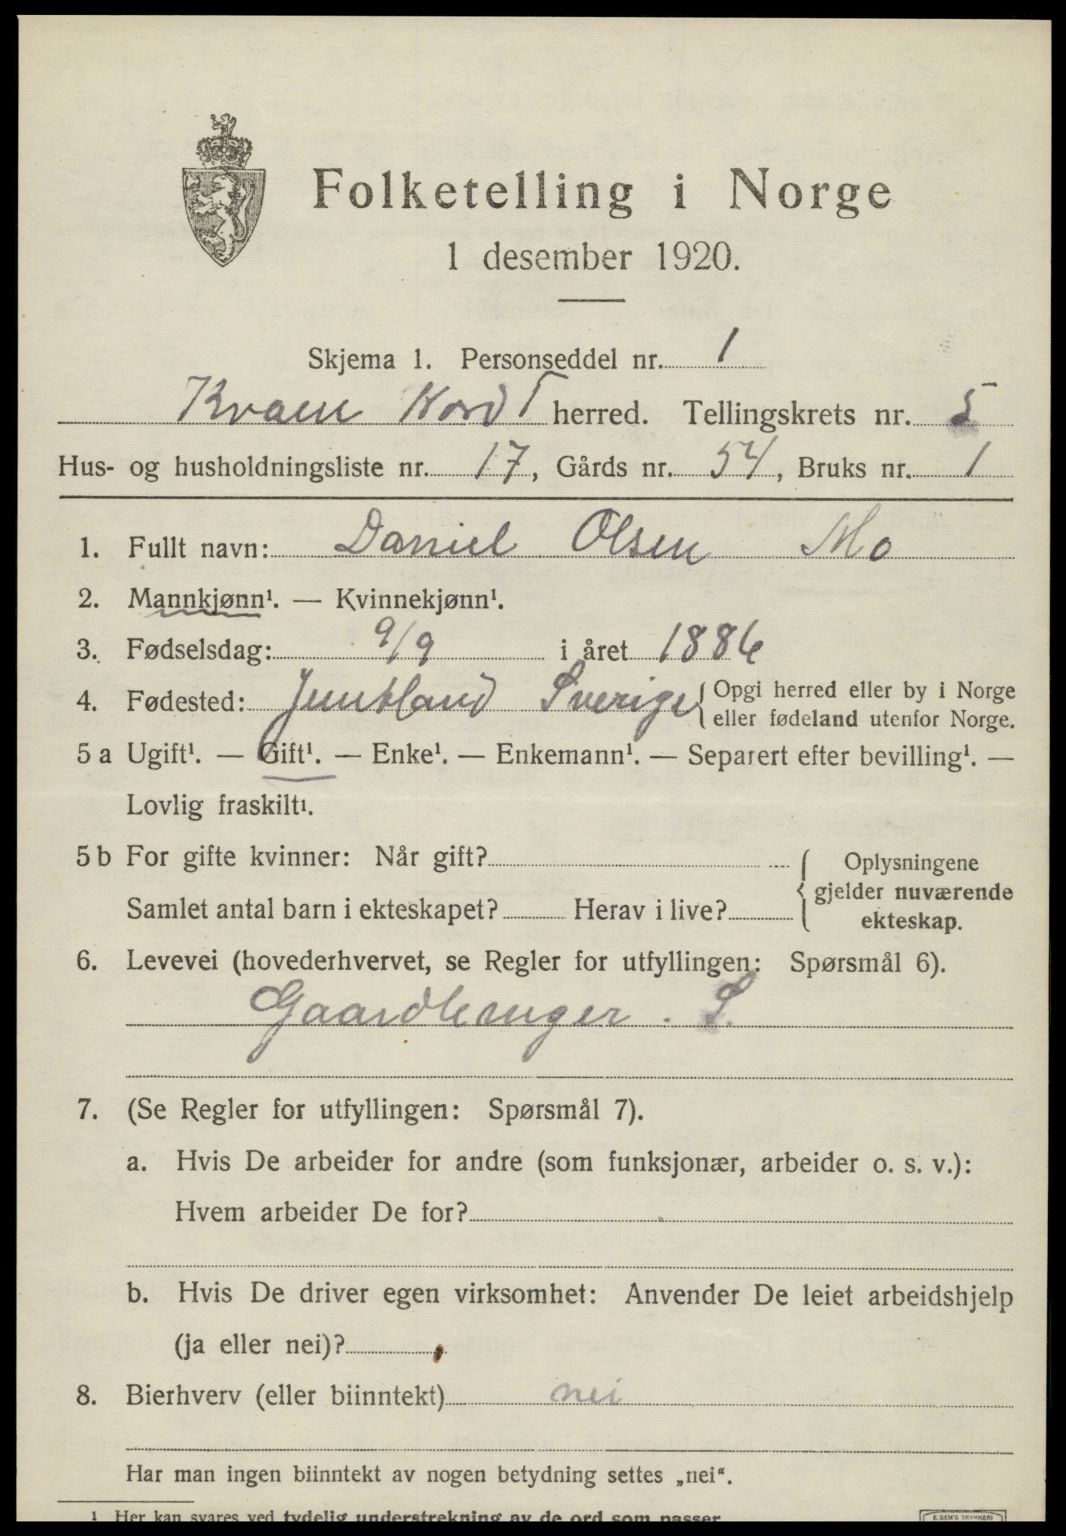 Folketelling i Norge
1 desember 1920.
Skjema 1. Personseddel nr. 1
Kvam Nord T herred. Tellingskrets nr. 5
Hus- og husholdningsliste nr. 17, Gårds nr. 54, Bruks nr. 1
1. Fullt navn: Daniel Olsen Mo
2. Mannkjønn¹. — Kvinnekjønn¹.
3. Fødselsdag: 9/9 i året 1886
4. Fødested: Jemtland Sverige { Opgi herred eller by i Norge
eller fødeland utenfor Norge.
5 a Ugift¹. — Gift¹. — Enke¹. — Enkemann¹. — Separert efter bevilling¹. —
Lovlig fraskilt¹.
5 b For gifte kvinner: Når gift?
Samlet antal barn i ekteskapet? Herav i live?
{ Oplysningene
gjelder nuværende
ekteskap.
6. Levevei (hovederhvervet, se Regler for utfyllingen: Spørsmål 6).
Gaardbruger. S.
7. (Se Regler for utfyllingen: Spørsmål 7).
a. Hvis De arbeider for andre (som funksjonær, arbeider o. s. v.):
Hvem arbeider De for?
b. Hvis De driver egen virksomhet: Anvender De leiet arbeidshjelp
(ja eller nei)?
8. Bierhverv (eller biinntekt) nei
Har man ingen biinntekt av nogen betydning settes „nei“.
1 Her kan svares ved tydelig understrekning av de ord som passer.